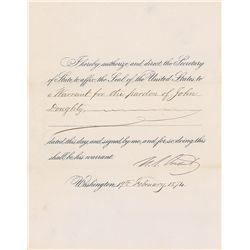 I hereby authorize and direct the Secretary
of State to affix the Seal of the United States to
a Warrant for the pardon of John
Doughty,
dated this day, and signed by me, and for so doing this
shall be his warrant.
U. S. Grant
Washington, 19th February, 1874.